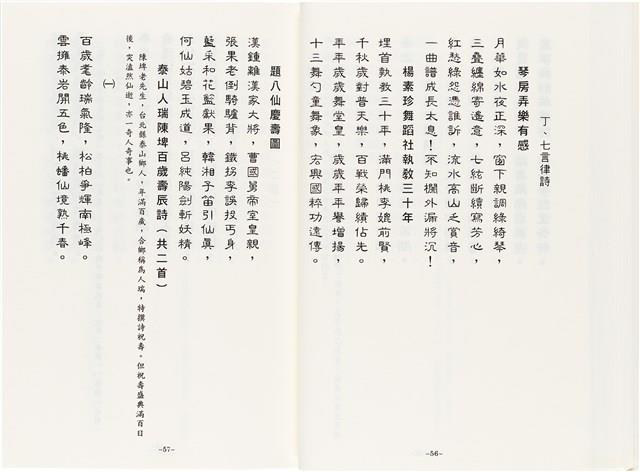 丁、七言律詩
琴房弄樂有感
月華如水夜正深，窗下親調綠綺琴，
三疊纏綿寄遙意，七絃斷續寫芳心，
紅愁綠怨憑誰訴，流水高山乏賞音，
一曲譜成長太息！不知欄外漏將沉！
楊素珍舞蹈社執教三十年
埋首執教三十年，滿門桃李媲前賢，
千秋歲對普天樂，百戰榮歸績佔先。
年年歲歲舞堂皇，歲歲年年譽增揚，
十三舞勺童舞象，宏興國粹功遠傳。
-56-
題八仙慶壽圖
漢鍾離漢家大將，曹國舅帝室皇親，
張果老倒騎驢背，鐵拐李誤投丐身，
藍采和花籃獻果，韓湘子笛引仙真，
何仙姑碧玉成道，呂純陽劍斬妖精。
泰山人瑞陳埤百歲壽辰詩（共二首）
陳埤老先生，台北縣泰山鄉人，年滿百歲，合鄉稱為人瑞，特撰詩祝壽。但祝壽盛典滿百日
後，突溘然仙逝，亦一奇人奇事也。
㈠
百歲耄齡瑞氣隆，松柏爭輝南極峰。
雲擁泰岩開五色，桃蟠仙境熟千春。
-57-